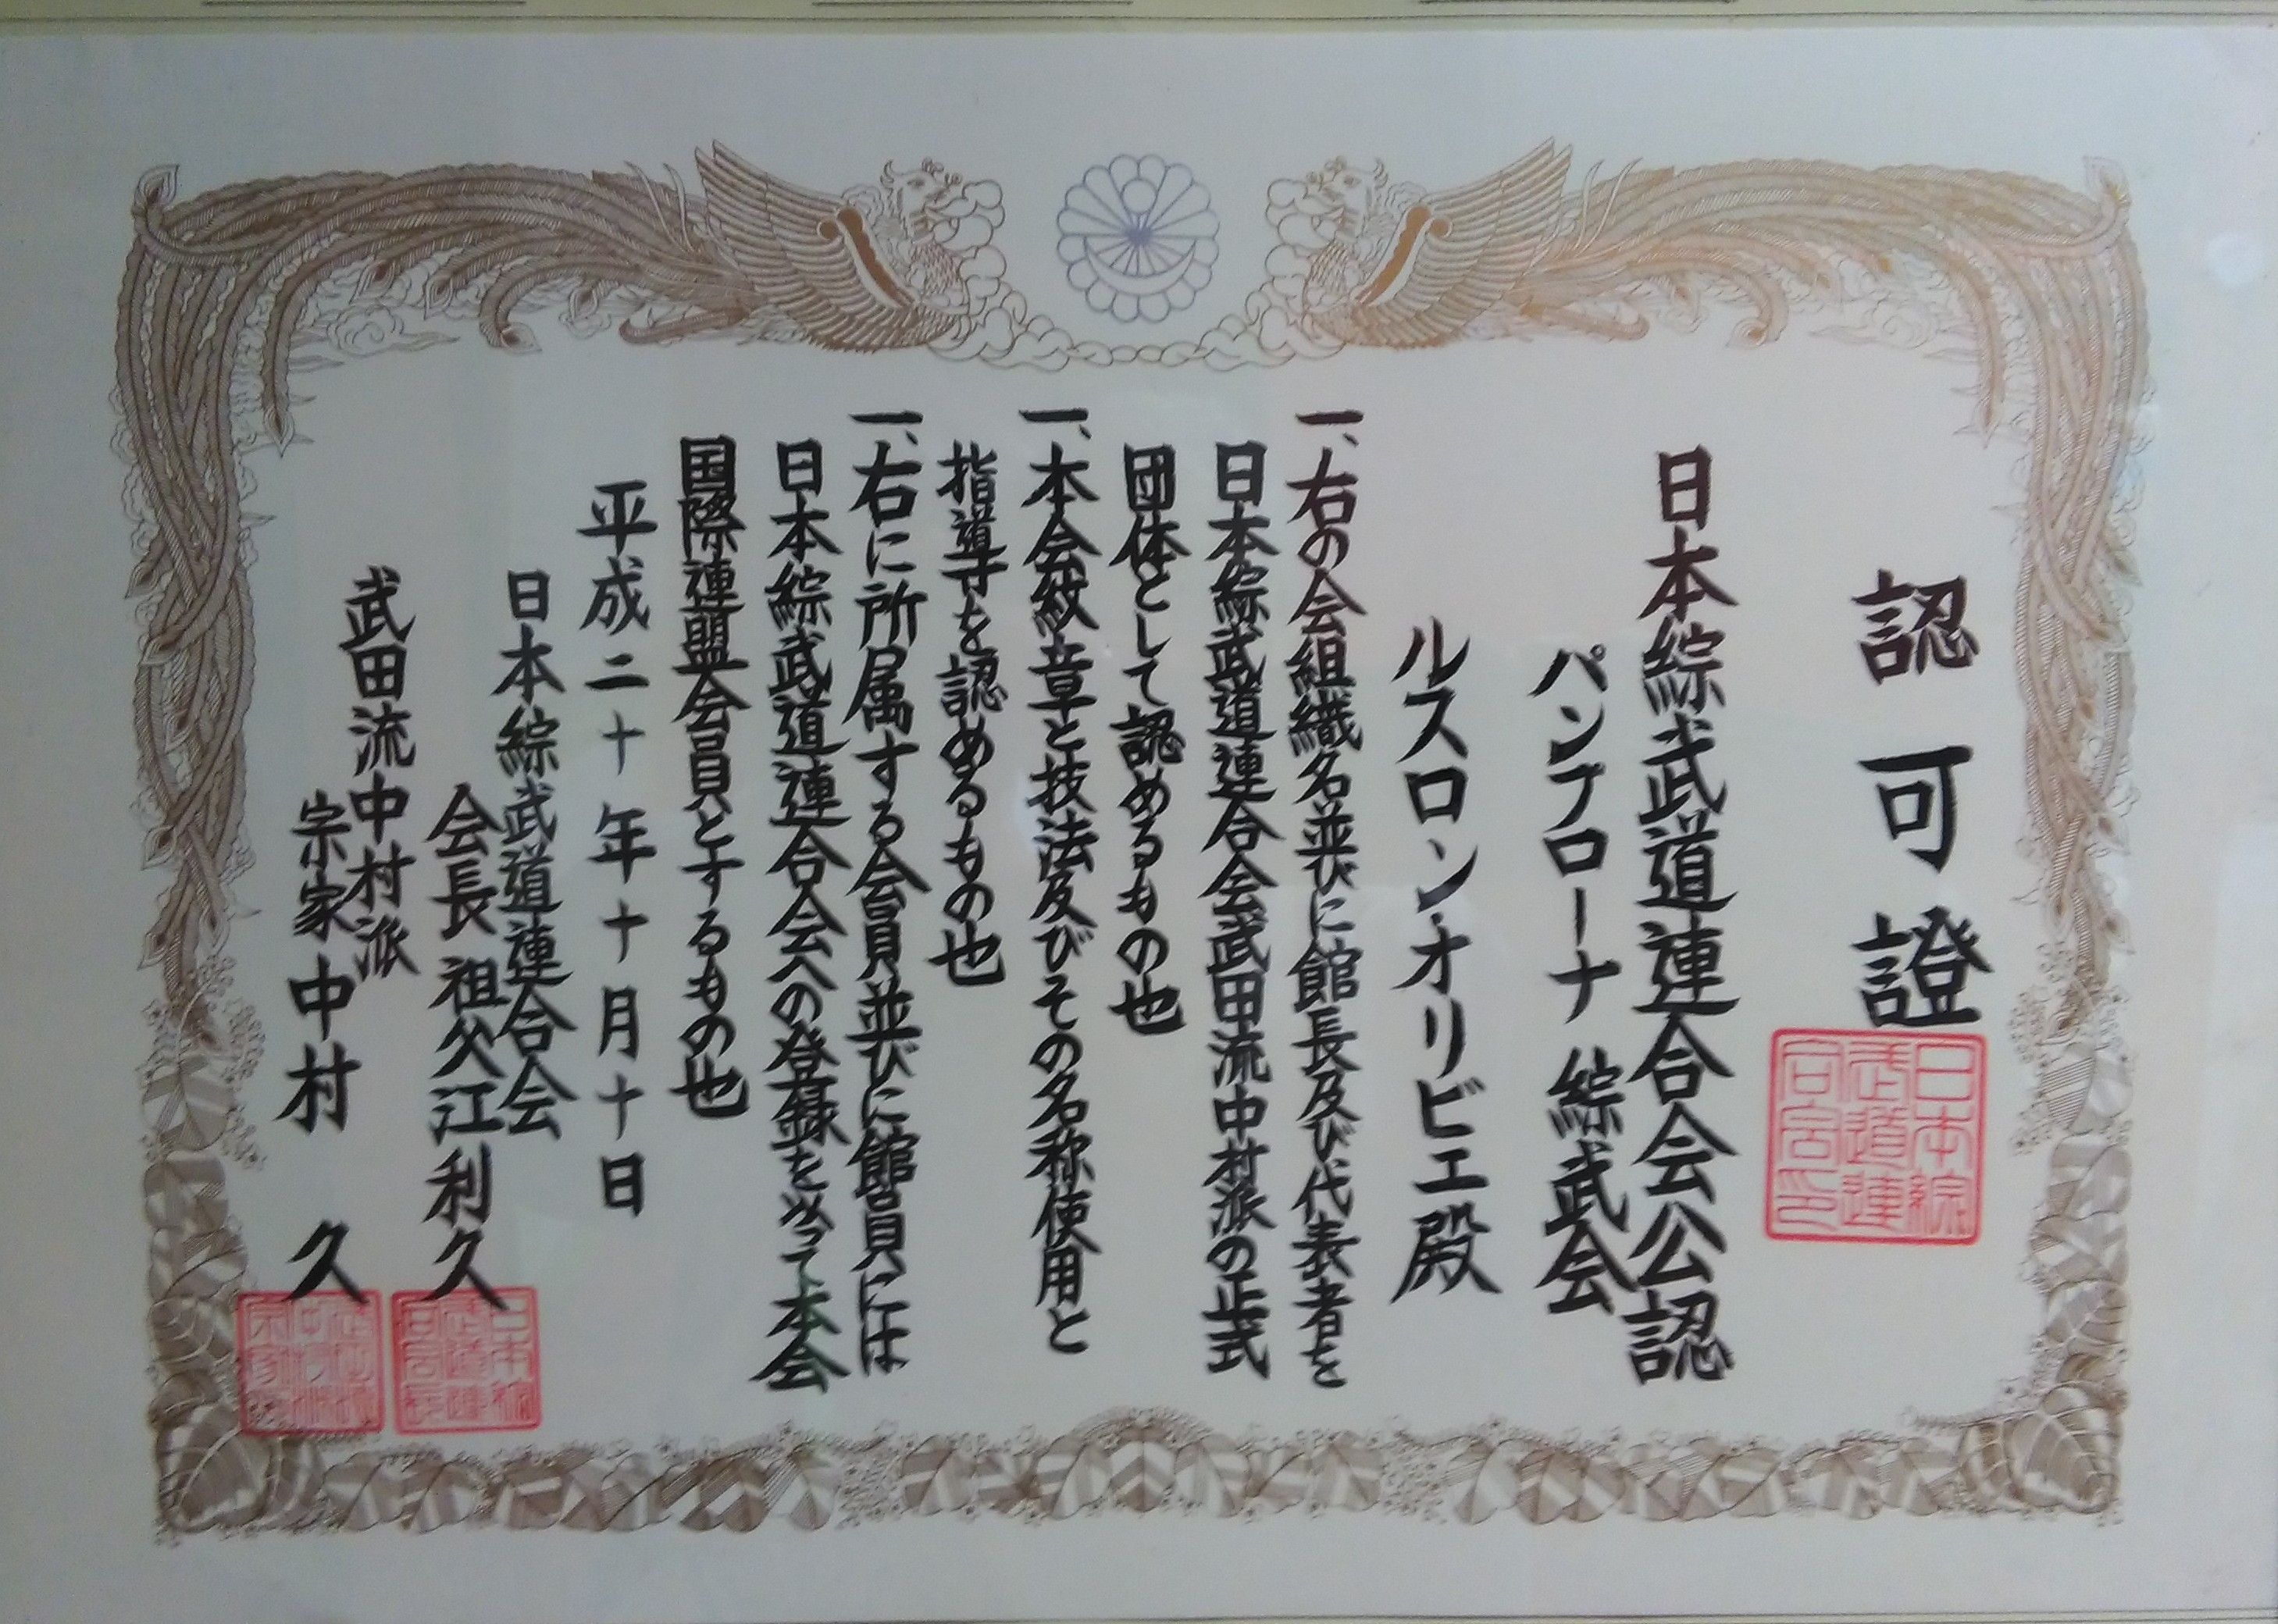 認可證
日本綜武道連合会公認
パンプローナ 綜武会
ルスロンオリビエ殿
一、右の会組織名並びに館長及び代表者を
日本綜武道連合会武田流中村派の正式
団体として認めるもの也
一、本会紋章と技法及びその名称使用と
指導を認めるもの也
一、右に所属する会員並びに館員には
日本綜武道連合会への登録を以って本会
国際連盟会員とするもの也
平成二十年十月十日
日本綜武道連合会
会長 祖父江利久
武田流中村派
宗家 中村 久